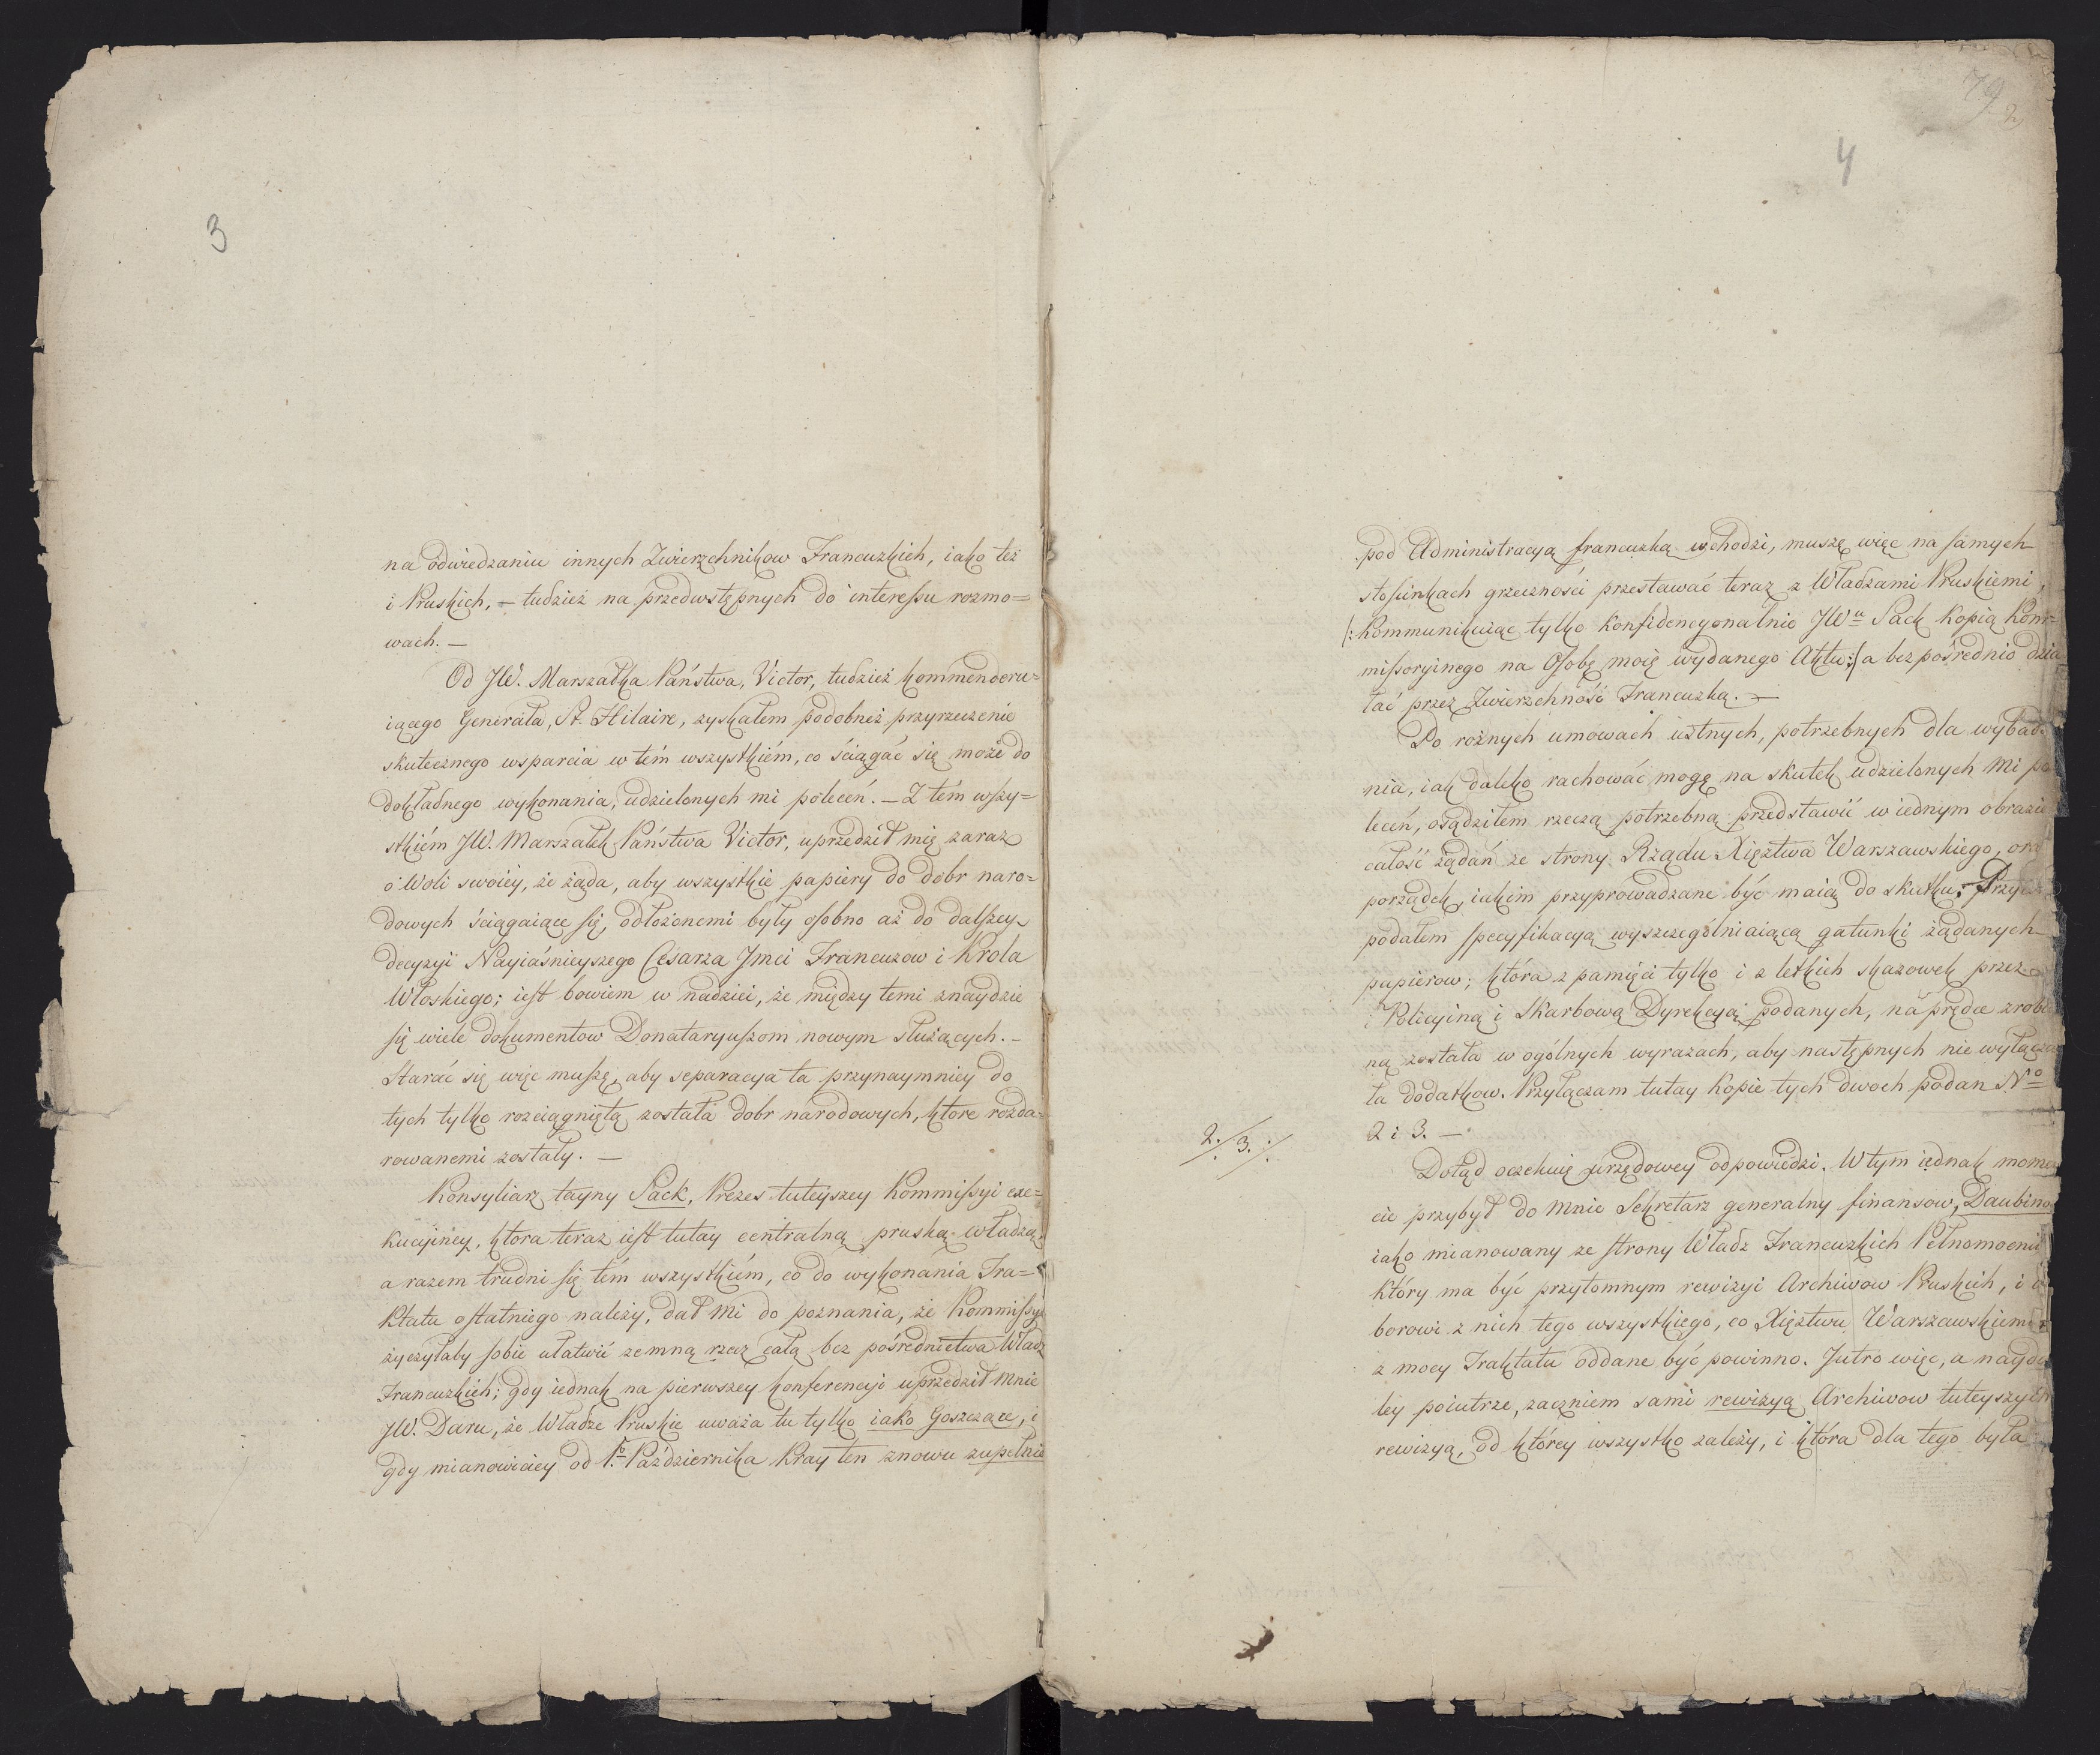 3
na odwiedzaniu innych Zwierzchnikow Francuzkich, iako też
i Pruskich, – tudzież na przedwstępnych do interessu rozmo=
wach. –
Od JW. Marszałka Państwa, Victor, tudzież kommenderu=
iącego Generała, St. Hilaire, zyskałem podobnież przyrzeczenie
skutecznego wsparcia w tém wszystkiém, co ściągać się może do
dokładnego wykonania, udzielonych mi poleceń. – Z tém wszy=
stkiém JW. Marszałek Państwa Victor, uprzedził mię zaraz
o Woli swoiey, że żąda, aby wszystkie papiery do dobr naro=
dowych ściągaiące się, odłożonemi były osobno aż do dalszey
decyzyi Nayiaśnieyszego Cesarza Jmci Francuzow i Krola
Włoskiego; iest bowiem w nadziei, że między temi znaydzie
się wiele dokumentow Donataryuszom nowym służących. –
Starać się więc muszę, aby separacya ta przynaymniey do
tych tylko rozciągniętą została dobr narodowych, ktore rozda=
rowanemi zostały. –
Konsyliarz tayny Sack, Prezes tuteyszey Kommissyi exe=
kucyiney, ktora teraz iest tutay centralną pruską władzą,
a razem trudni się tém wszystkiém, co do wykonania Tra=
ktatu ostatniego należy, dał mi do poznania, że Kommissya
życzyłaby sobie ułatwić zemną rzecz całą bez pośrednictwa Władz
Francuzkich; gdy iednak na pierwszey konferencyi uprzedził mnie
JW. Daru, że Władze Pruskie uważa tu tylko iako Goszczące, i
gdy mianowiciey od 1go Października Kray ten znowu zupełnie
79
2
4
pod Administracyą francuzką wchodzi, muszę więc na samych
stosunkach grzeczności przestawać teraz z Władzami Pruskiemi,
/: Kommunikuiąc tylko konfidencyonalnie JWu Sack kopią Kom=
missoryinego na Osobę moię wydanego Aktu :/ a bezpośrednio dzia=
łać przez Zwierzchność Francuzką. –
Po rożnych umowach ustnych, potrzebnych dla wybada
nia, iak daleko rachować mogę na skutek udzielonych mi po
leceń, osądziłem rzeczą potrzebną przedstawić w iednym obrazie
całość żądań ze strony Rządu Xięztwa Warszawskiego, ora
porządek, iakim przyprowadzane być maią do skutku;
podałem specyfikacyą wyszczególniaiącą gatunki żądanych
papierow; która z pamięci tylko i z letkich skazowek przez
Policyiną i Skarbową Dyrekcyią podanych, na prędce zrobio
ną została w ogólnych wyrazach, aby następnych nie wyłącza
ła dodatkow. Przyłączam tutay kopie tych dwoch podan No
2./3./.
2 i 3. –
Dotąd oczekuię urzędowey odpowiedzi. W tym iednak mome
cie przybył do mnie Sekretarz generalny finansow, Daubino
iako mianowany ze strony Władz Francuzkich Pełnomocnik
który ma być przytomnym rewizyi Archiwow Pruskich, i
borowi z nich tego wszystkiego, co Xięztwu Warszawskiemu
z mocy Traktatu oddane być powinno. Jutro więc, a nayda
ley poiutrze, zaczniem sami rewizyą Archiwow tuteyszych
rewizyą, od którey wszystko zależy, i która dla tego była